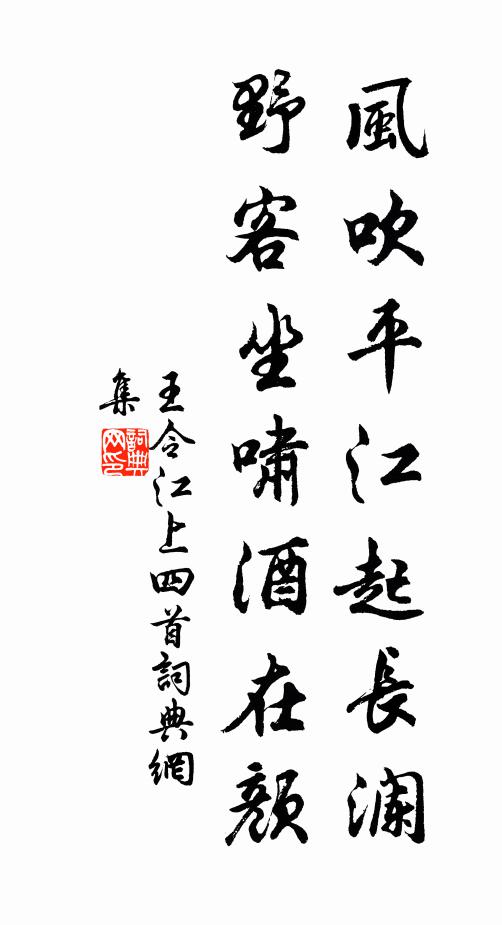 風吹平江起長瀾
野客坐嘯酒在顏
王令江上四首詞典網
集
詞典
网印